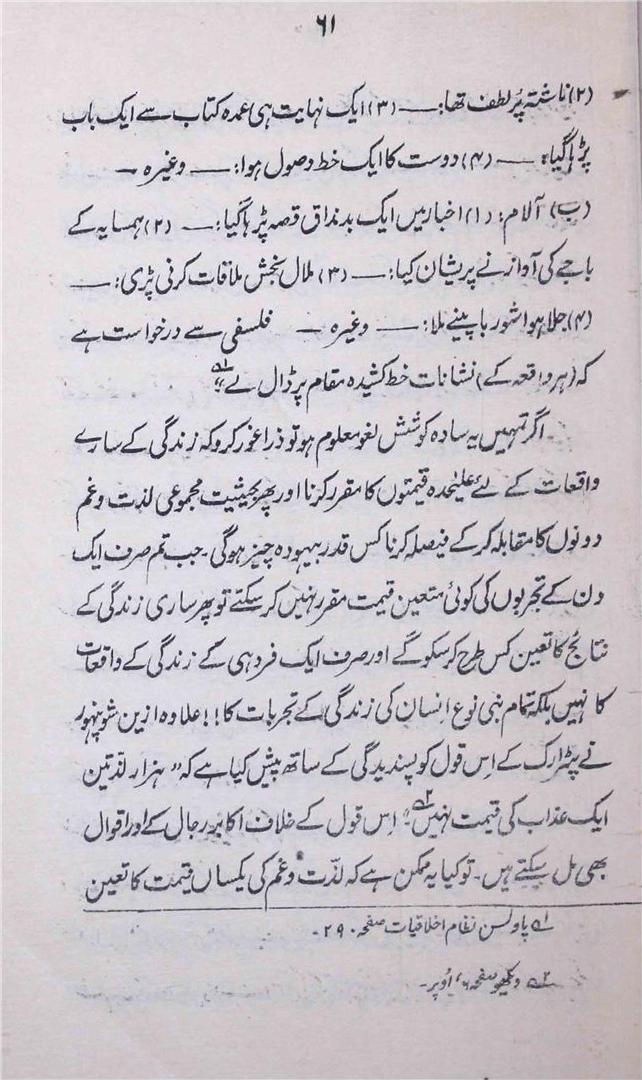 ۶۱
(۲) ناشتہ پُر لطف تھا:ــــ (۳) ایک نہایت ہی عمدہ کتاب سے ایک باب
پڑہا گیا: ــــ (۴) دوست کا ایک خط وصول ہوا: ــــ وغیرہ ــ
(ب) آلام: (۱) اخبار میں ایک بد مذاق قصہ پڑہا گیا: ــــ (۲) ہمسایہ کے
باجے کی آواز نے پریشان کیا: ــــ (۳) ملال بخش ملاقات کرنی پڑی: ــــ
(۴) جلا ہوا شوربا پینے ملا: ــــ وغیرہ ــ فلسفی سے درخواست ہے
کہ (ہر واقعہ کے) نشانات خط کشیدہ مقام پر ڈال لے"۱؎
اگر تمہیں یہ سادہ کوشش لغو معلوم ہو تو ذرا غور کرو کہ زندگی کے سارے
واقعات کے لئے علیٰحدہ قیمتوں کا مقرر کرنا اور پھر بحیثیت مجموعی لذت و غم
دونوں کا مقابلہ کر کے فیصلہ کرنا کس قدر بیہودہ چیز ہوگی۔ جب تم صرف ایک
دن کے تجربوں کی کوئی متعین قیمت مقرر نہیں کر سکتے تو پھر ساری زندگی کے
نتائج کا تعین کس طرح کر سکو گے اور صرف ایک فرد ہی کے زندگی کے واقعات
کا نہیں بلکہ تمام بنی نوع انسان کی زندگی کے تجربات کا!! علاوہ ازین شوپنہور
نے پٹرارک کے اِس قول کو پسندیدگی کے ساتھ پیش کیا ہے کہ "ہزار لذتین
ایک عذاب کی قیمت نہیں"۲؎ اِس قول کے خلاف اکابر رجال کے اور اقوال
بھی مل سکتے ہیں۔ تو کیا یہ ممکن ہے کہ لذت و غم کی یکساں قیمت کا تعین
۱؎ پاولسن نظام اخلاقیات صفحہ ۲۹۰۔
۲؎ دیکھو صفحہ ۶، اُوپر۔